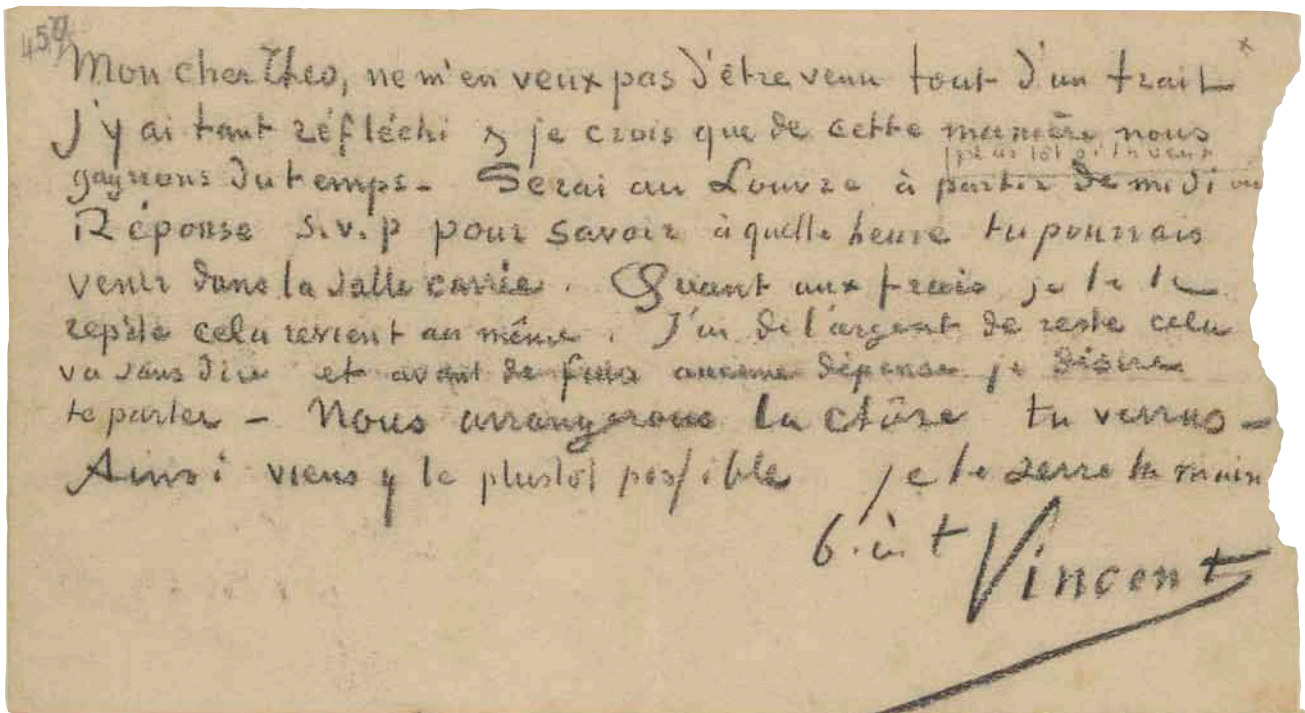 459
Mon cher Theo, ne m'en veux pas d'être venu tout d'un trait
J'y ai tant réfléchi & je crois que de cette manière nous
gagnons du temps - Serai au Louvre à partir de midi
plus tôt si tu veux
Réponse s.v.p pour savoir à quelle heure tu pourrais
venir dans la salle carrée. Quant aux frais, je te le
repète cela revient au même. J'ai de l'argent de reste cela
va sans dire et avant de faire aucune dépense je désire
te parler - Nous arrangerons la chôse tu verras -
Ainsi viens y le plustôt possible je te serre la main
b. à. t Vincent